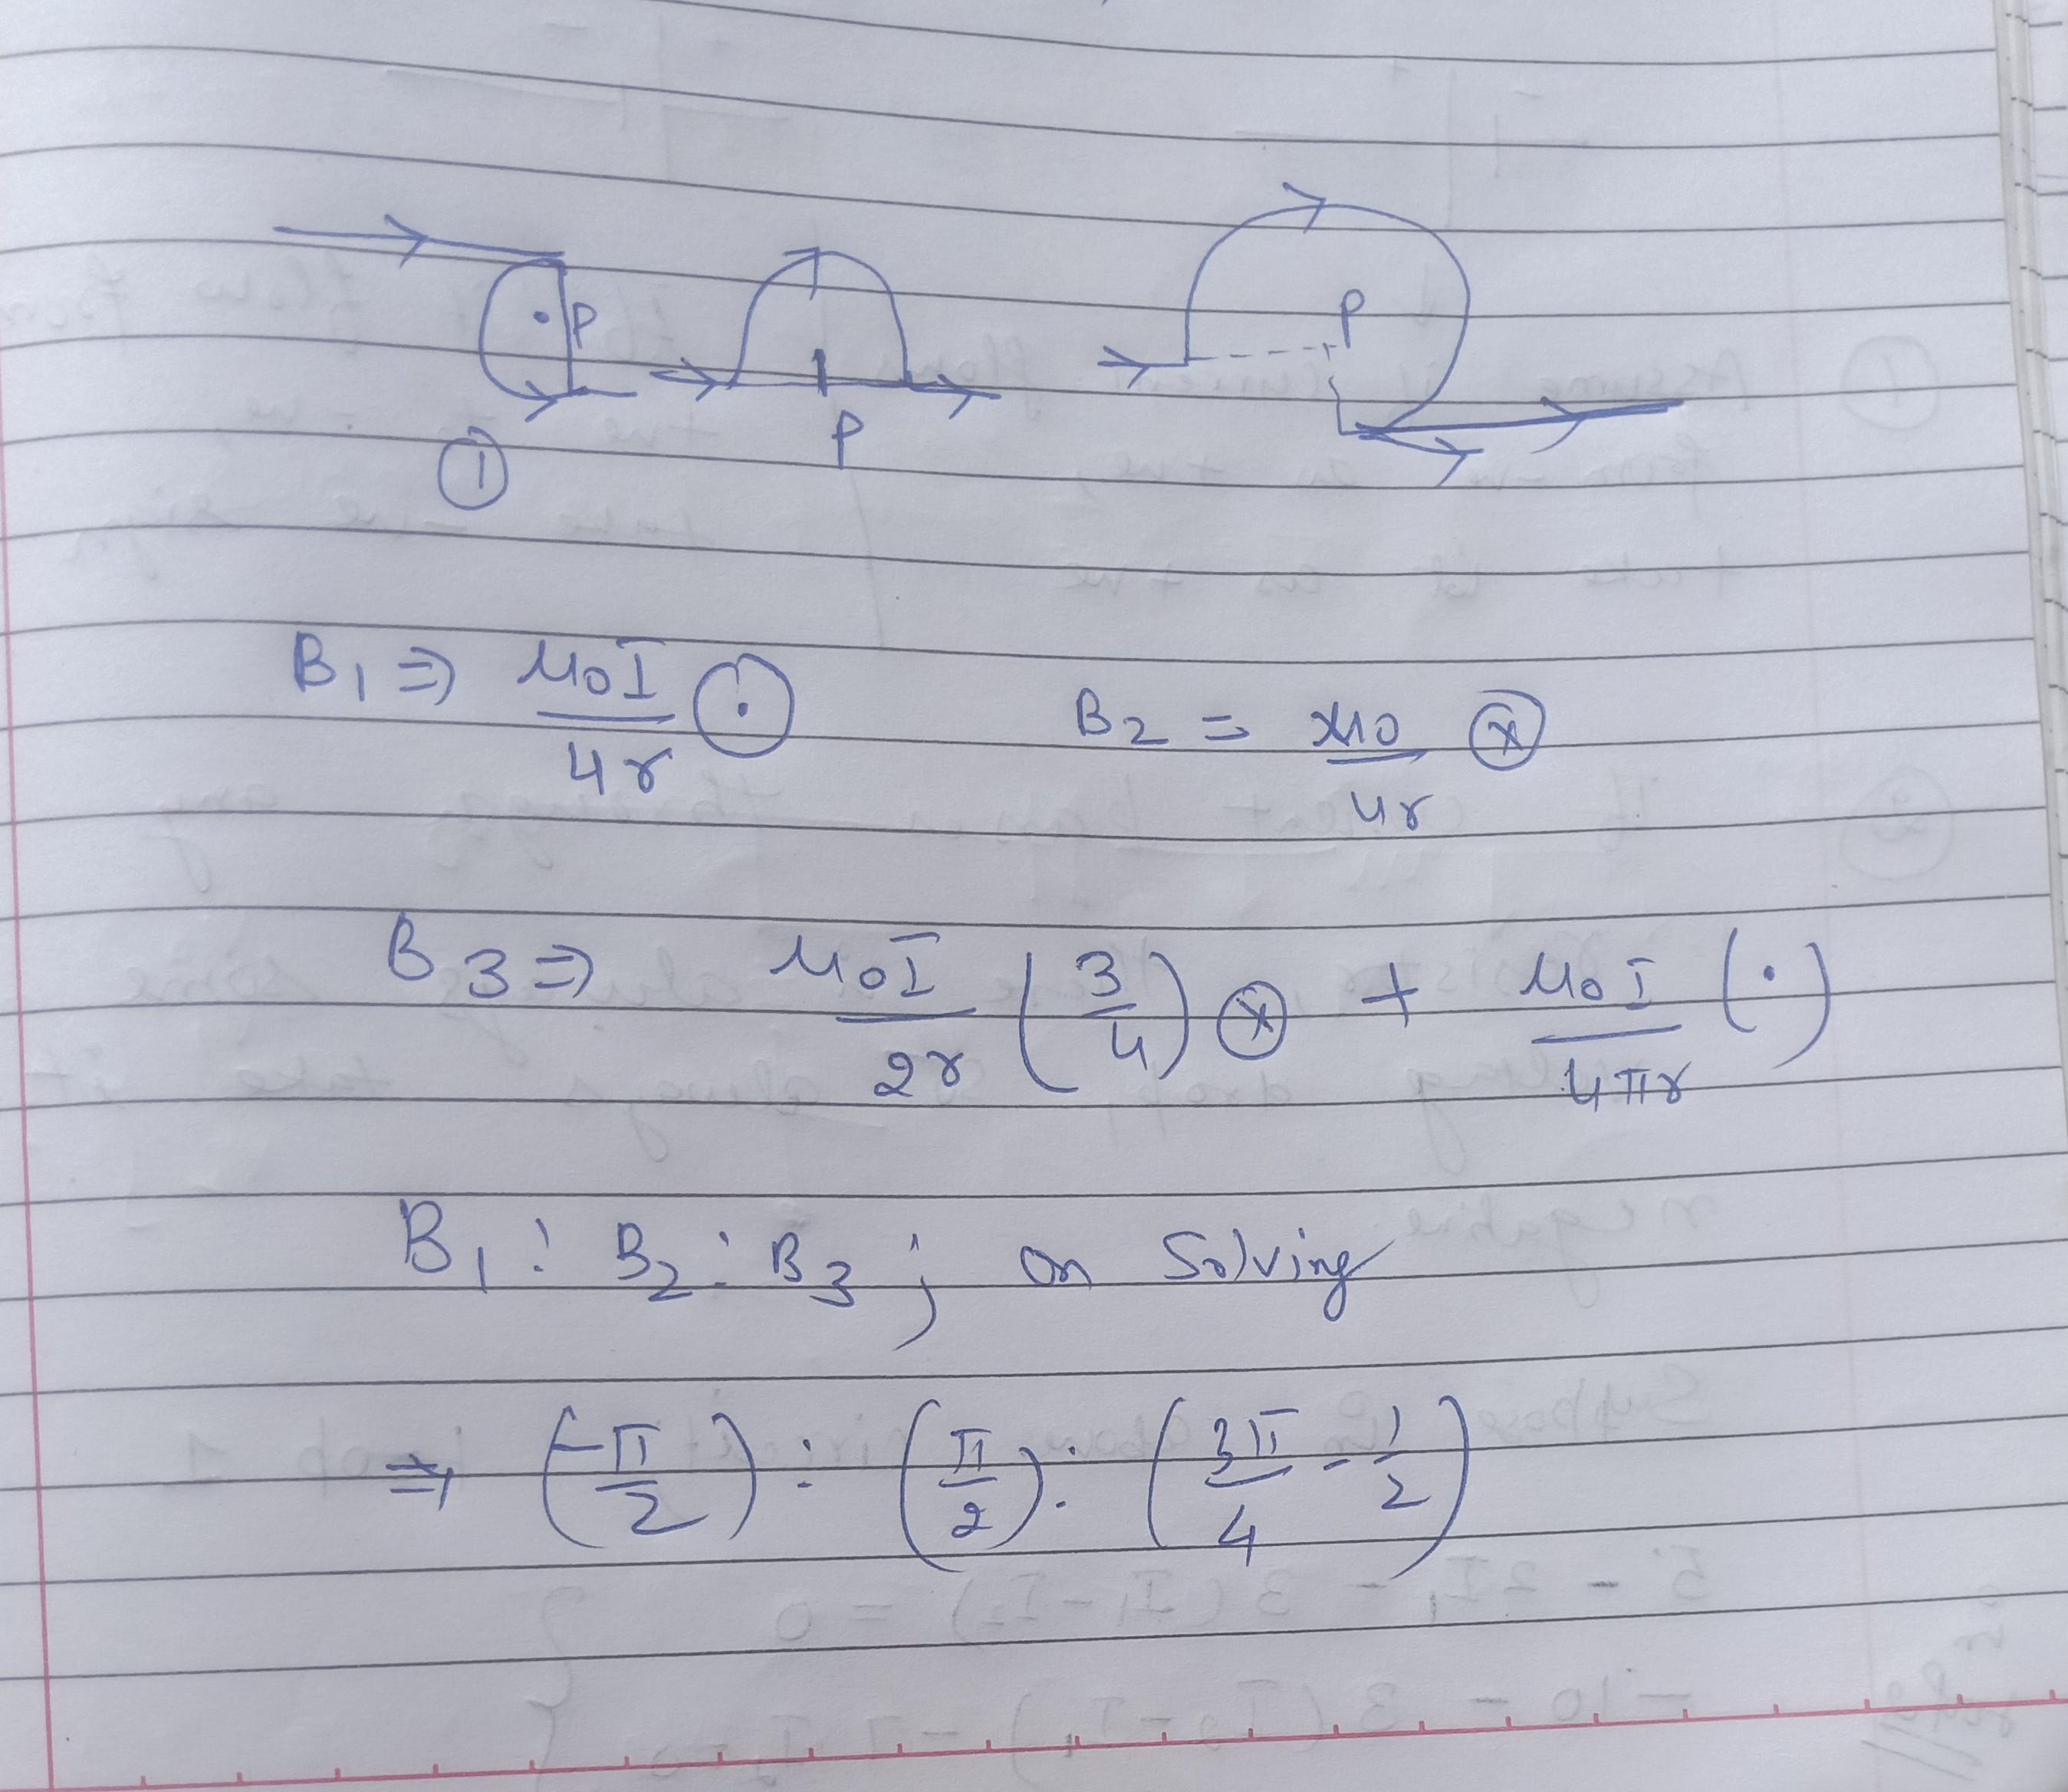 P P P
①
B₁ ⇒ μ₀I/4r ⊙ B₂ = μ₀/4r ⊗
B₃ ⇒ μ₀I/2r (3/4) ⊗ + μ₀I/4πr (·)
B₁ : B₂ : B₃ ; on Solving
⇒ (-π/2) : (π/2) : (3π/4 - 1/2)